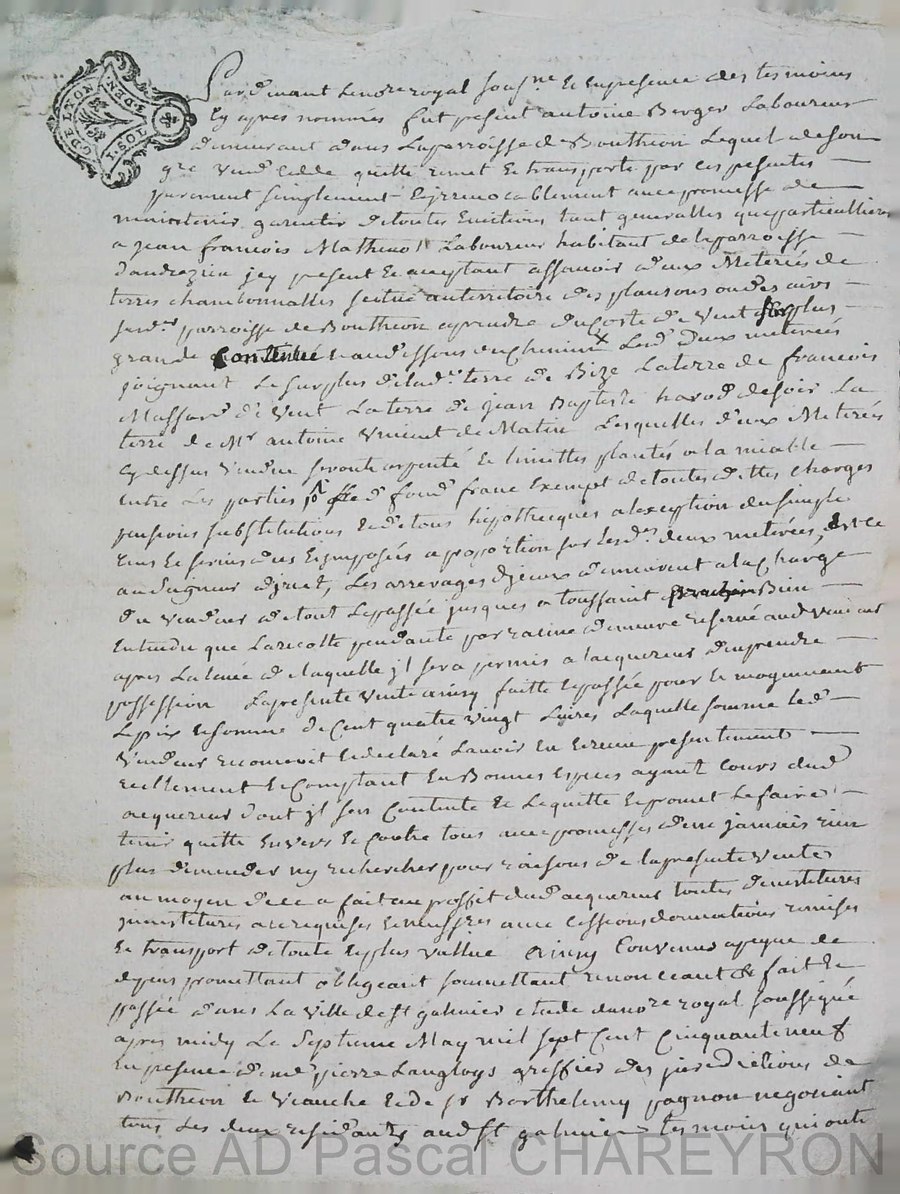 G DE LYON
1. SOL
4 DEN.
Pardevant Le no.re royal sous.né Et En presence des tesmoins
Cy apres nommés fut present antoine Berger Laboureur
demeurant dans La parroisse de Bouthéon Lequel de son
gré vend cedde quitte remet Et transporte par ces presentes
purement simplement Et irrevocablement avec promesse de
maintenir garentir de toutes Evictions tant generalles que particullieres
a jean francois Mathevot Laboureur habitant de la parroisse
d'andrezieu jcy present Et acceptant assavoir deux Meterées de
terres chambonnalles scitué au territoire des plansons ou des
susd. parroisse de Bouthéon a prendre du Coste de Vent
grande Contenue Et au dessous du Chemin x Lesd. Deux meterées
joignant Le surplus de lad. terre de Bize La terre de francois
Massard de Vent La terre de jean Baptiste harod de soir La
terre de Mr antoine Vincent de Matin Lesquelles deux Meterées
Cy dessus vendue seront arpenté Et limittes plantés a la miable
Entre Les parties fond franc Exempt de toutes dettes charges
pensions substitutions Et de tous hypotheques a lexception du simple
Cens Et servis a proportion sur lesd. deux meterées,
au seigneur direct, Les arrerages diceux demeurent a la charge
du vendeur de tout Le passée jusques a toussaint prochain Bien
Entendu que La recolte pendante par racine demeure reservé aud. vendeur
apres La levée de laquelle jl sera permis a lacquereur den prendre
possession La presente vente ainsy faitte Et passée pour Et moyennant
Le prix Et somme de Cent quatre vingt Livres Laquelle somme Led.
Vendeur reconnoit Et declaré Lavoir Eu Et receu presentement
reellement Et Comptant En Bonnes Especes ayant Cours dud.
acquereur dont jl sen Contente Et Le quitte Et promet Le faire
tenir quitte Envers Et Contre tous avec promesses den ne jamais rien
plus demander ny rechercher pour raisons de la presente vente
au moyen de ce a fait au proffit dud. acquereur toutes devestitures
jnvestitures a ce requises Et necessres avec cessions donnations remises
Et transport de toute Et plus vallue Ainsy Convenus a peyne de
depens promettant obligeant soumettant renonceant & fait Et
passée dans La ville de st galmier etude du no.re royal soussigné
apres midy Le Septieme May mil sept Cent Cinquante neuf
En presence de me pierre Langloys greffier des jurisdictions de
Bouthéon Et Veauche Et de sr Barthelemy pagnon negociant
tous Les deux residants aud. st galmier tesmoins qui ont
Source AD Pascal CHAREYRON